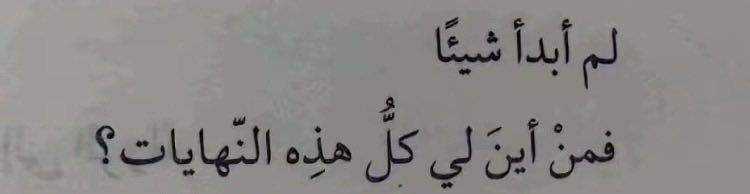 لم أبدأ شيئًا
فمنْ أينَ لي كلُّ هذِه النّهايات؟